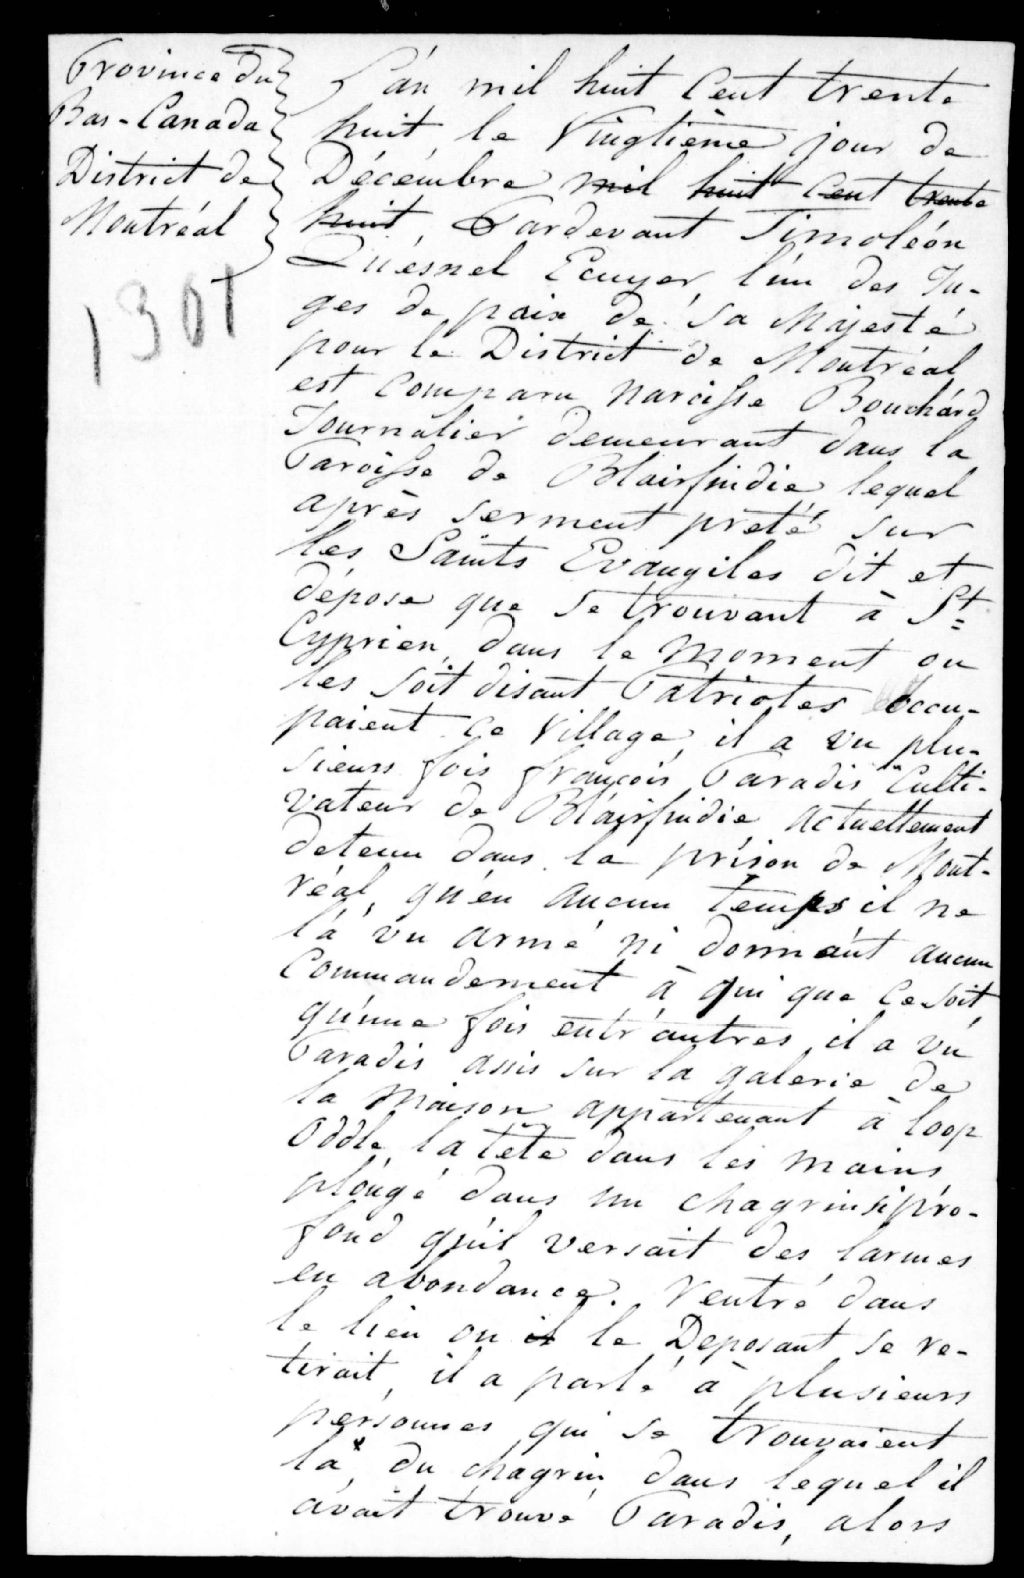 Province du
Bas-Canada
District de
Montréal
1301
L'án mil huit Cent trente
huit, le Vingtième jour de
Décémbre mil huit Cent trente
huit, Pardevant Timoléón
Quésnel Ecuyer, l'ún des Ju-
ges de paix de Sa Majesté
pour le District de Montréal
est Comparu Narcisse Bouchárd
Journalier demeurant dans la
Paroisse de Blairfindie, lequel
après serment preté sur
les Saints Evangiles dit et
dépose que se trouvant à St=
Cyprien, dans le Moment ou
les soit disant Patriotes occu-
paient ce Village, il a vu plu-
sieurs fois françois Paradis Culti-
vateur de Blairfindie, actuellement
detenu dans la prison de Mont-
réal, qu'én aucun temps il ne
l'á vu armé ni donnant aucun
Commandement à qui que ce soit,
qu'úne fois entr'autres, il a vú
Paradis assis sur la galerie de
la Maison appartenant à loop
Oddle, la tête dans les mains
plóngé dans un chagrin si pro-
fond qu'il versait des larmes
en abondance. Rentré dans
le lieu ou il le Deposant se re-
tirait, il a parlé à plusieurs
personnes qui se trouvaient
là, du chagrin dans lequel il
avait trouvé Paradis, alors